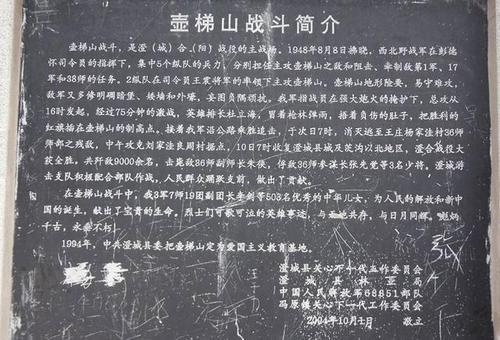 壶梯山战斗简介
壶梯山战斗，是澄（城）合（阳）战役的主战场。1948年8月8日拂晓，西北野战军在彭德
怀司令员的指挥下，集中5个纵队的兵力，分别担任主攻壶梯山之敌和阻击、牵制敌第1军、17
军和38师的任务。2纵队在司令员王震将军的率领下主攻壶梯山。壶梯山地形险要，易守难攻，
敌军又多修明碉暗堡、矮墙和外壕，妄图负隅顽抗。我军指战员在强大炮火的掩护下，总攻从
16时发起，经过75分钟的激战，英雄排长杜立海，冒着枪林弹雨，捂着负伤的肚子，把胜利的
红旗插在壶梯山的制高点，接着我军沿公路乘胜追击，于次日7时，消灭逃至王庄杨家洼村36师
师部之残敌，中午攻克刘家洼良周村据点，10日7时收复澄城县城及茨沟以北地区，澄合战役大
获全胜。共歼敌9000余名，击毙敌36师副师长朱侠，俘敌36师参谋长张先觉等3名少将。澄城游
击支队积极配合部队作战，人民群众踊跃支前，献出了贡献。
在壶梯山战斗中，我3军7师19团副团长李剑等503名优秀的中华儿女，为人民的解放和新中
国的诞生，献出了宝贵的生命。烈士们可歌可泣的英雄事迹，与圣地共存，与日月同辉，彪炳
千古，永垂不朽。
1994年，中共澄城县委把壶梯山定为爱国主义教育基地。
澄城县关心下一代工作委员会
澄城县林业局
中国人民解放军68851部队
冯原镇关心下一代工作委员会
2004年10月1日 敬立